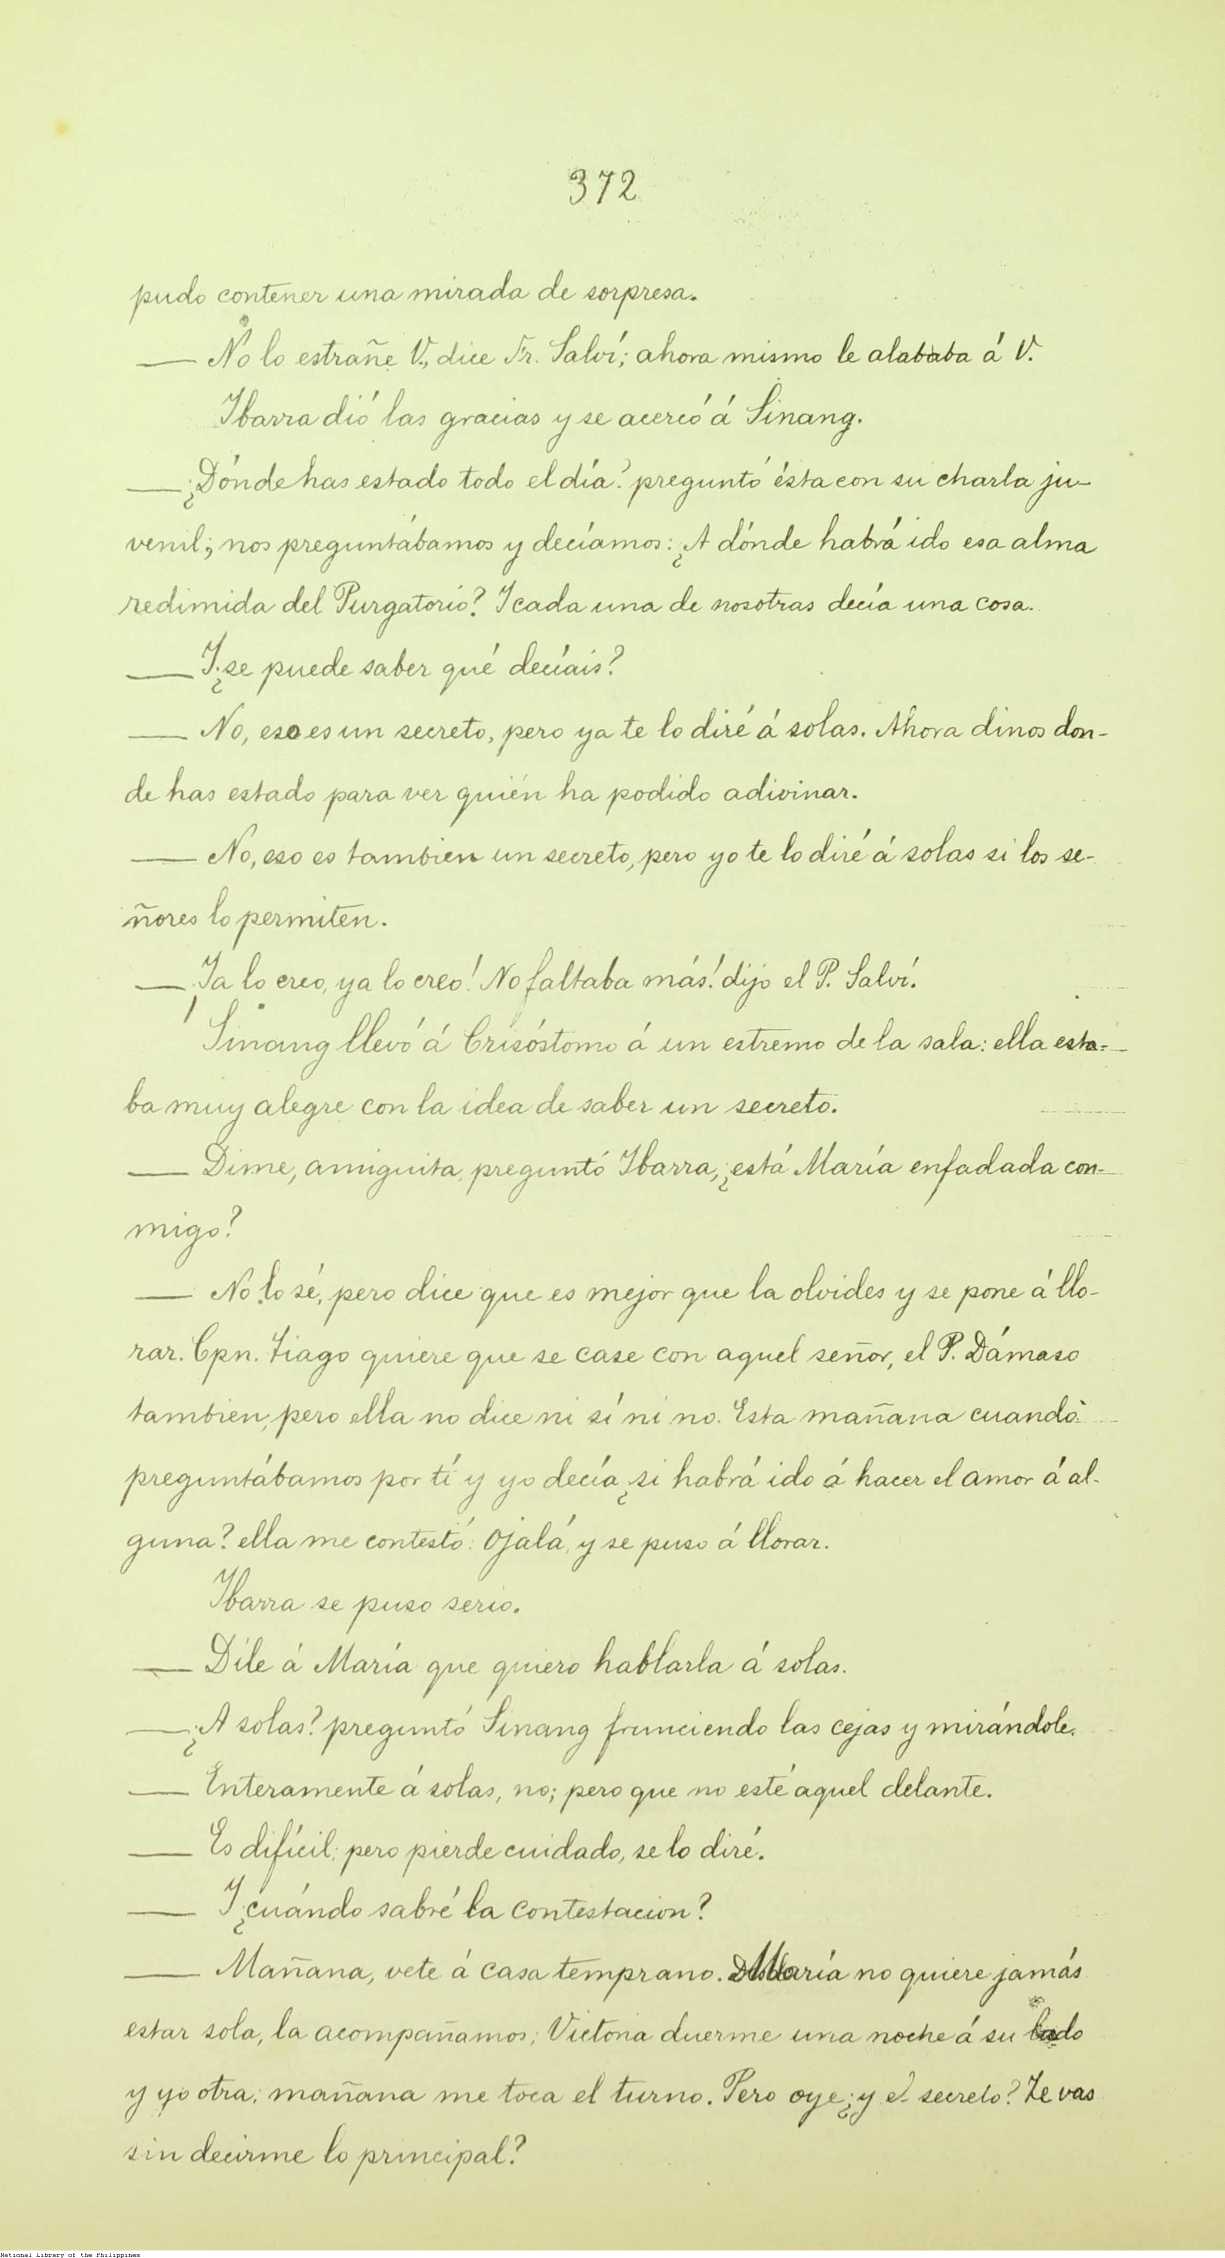 372
pudo contener una mirada de sorpresa.
— No lo estrañe V., dice Fr. Salví; ahora mismo le alababa á V.
Ibarra dió las gracias y se acercó á Sinang.
— ¿Dónde has estado todo el día? preguntó ésta con su charla ju-
venil; nos preguntábamos y decíamos: ¿A dónde habrá ido esa alma
redimida del Purgatorio? Y cada una de nosotras decía una cosa.
— Y ¿se puede saber qué decíais?
— No, eso es un secreto, pero ya te lo diré á solas. Ahora dinos don-
de has estado para ver quién ha podido adivinar.
— No, eso es tambien un secreto, pero yo te lo diré á solas si los se-
ñores lo permiten.
— ¡Ya lo creo, ya lo creo! No faltaba más! dijo el P. Salví.
Sinang llevó á Crisóstomo á un estremo de la sala: ella esta-
ba muy alegre con la idea de saber un secreto.
— Dime, amiguita, preguntó Ibarra, ¿está María enfadada con-
migo?
— No lo sé, pero dice que es mejor que la olvides y se pone á llo-
rar. Cpn. Tiago quiere que se case con aquel señor, el P. Dámaso
tambien, pero ella no dice ni sí ni no. Esta mañana cuando
preguntábamos por tí y yo decía ¿si habrá ido á hacer el amor á al-
guna? ella me contestó: Ojalá, y se puso á llorar.
Ibarra se puso serio.
— Dile á María que quiero hablarla á solas.
— ¿A solas? preguntó Sinang frunciendo las cejas y mirándole.
— Enteramente á solas, no; pero que no esté aquel delante.
— Es difícil; pero pierde cuidado, se lo diré.
— Y ¿cuándo sabré la contestacion?
— Mañana, vete á casa temprano. María no quiere jamás
estar sola, la acompañamos; Victoria duerme una noche á su lado
y yo otra; mañana me toca el turno. Pero oye ¿y el secreto? Te vas
sin decirme lo principal?
National Library of the Philippines